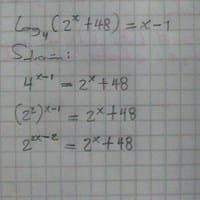 Log₄(2ˣ+48)=x-1
4ˣ⁻¹ = 2ˣ+48
(2²)ˣ⁻¹ = 2ˣ+48
2²ˣ⁻² = 2ˣ+48